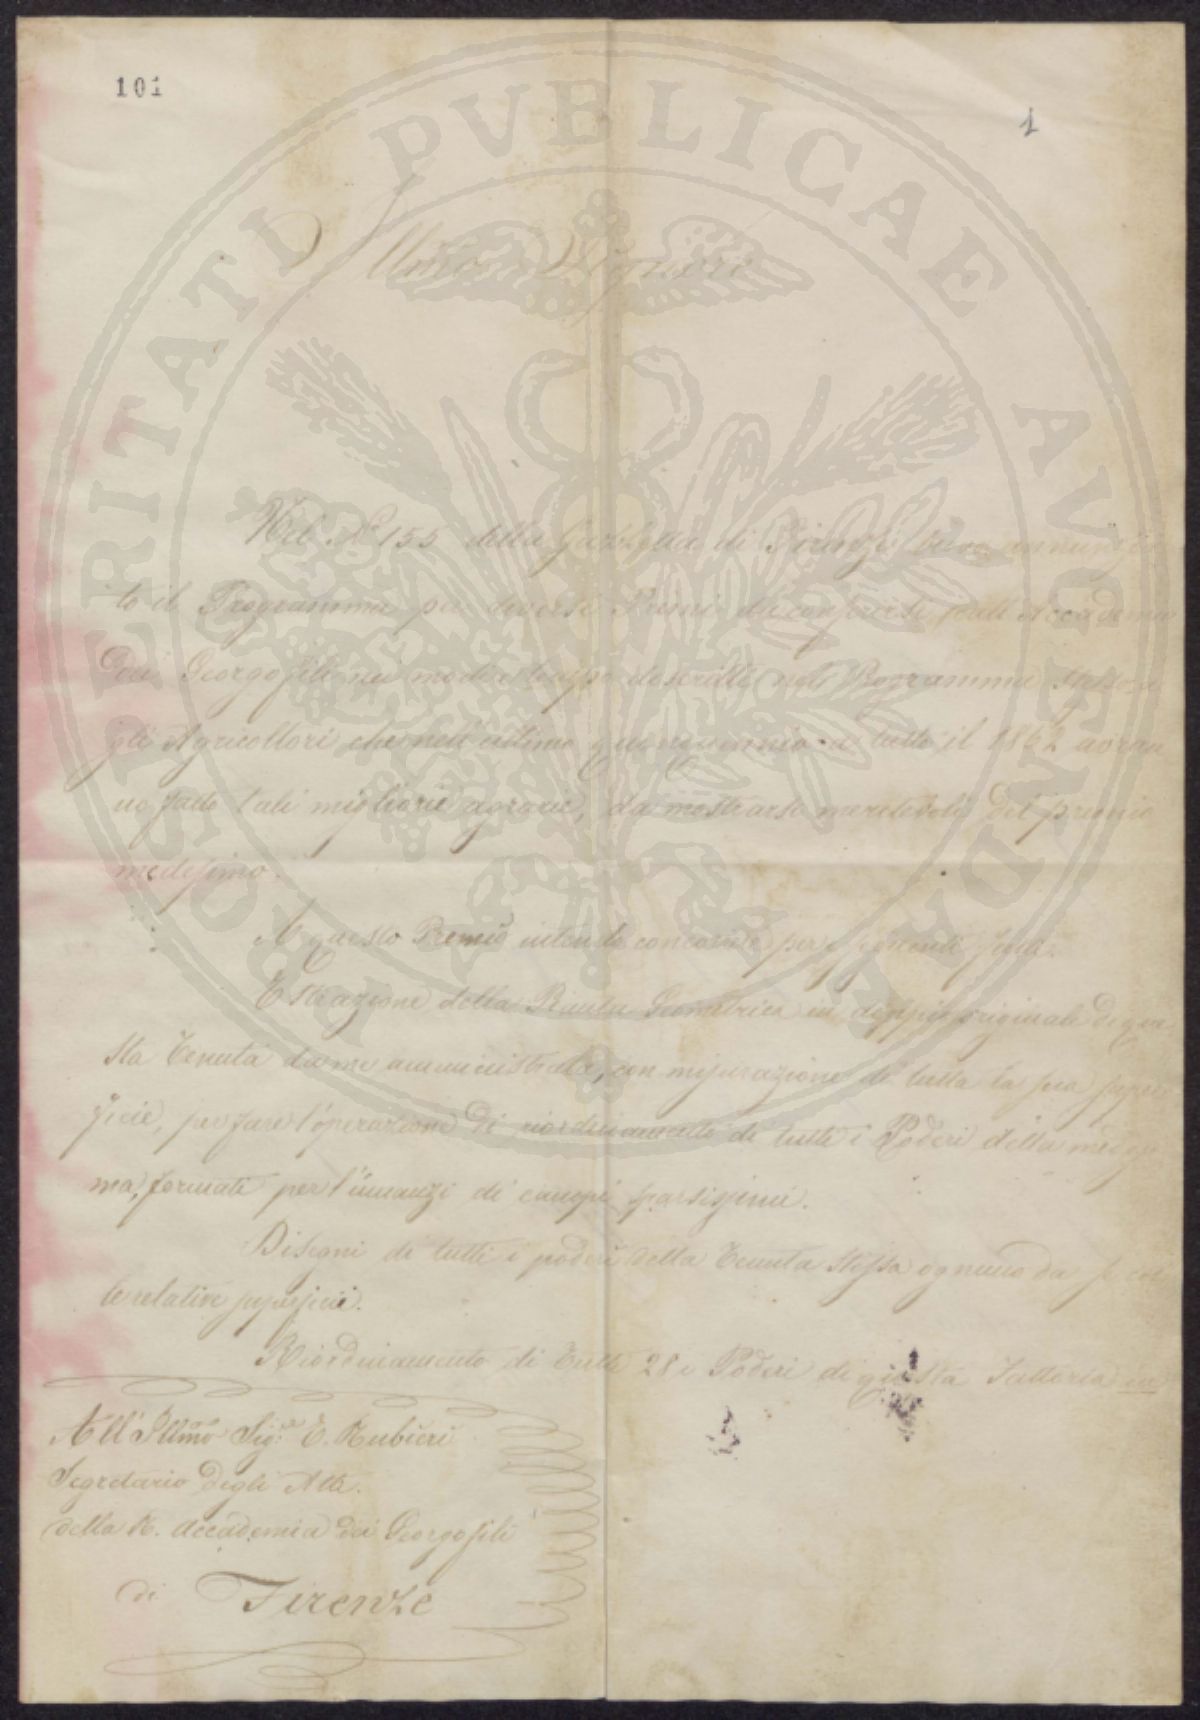 101
1
PROSPERITATI PVBLICAE AVGENDAE
Illmo Signore
Nel N.º 155 della Gazzetta di Firenze annunzia
to il Programma per diversi Premi da conferirsi dall'Accademia
Dei Georgofili nei modi e descritti nel Programma stesso a
gli Agricoltori che nell'ultimo quinquennio a tutto il 1862 avran
no fatto tali migliorie agrarie, da mostrarsi meritevoli del premio
medesimo.
A questo Premio intendo concorrere per i seguenti titoli.
Estrazione della Pianta Geometrica in doppio originale di que
sta Tenuta da me amministrata, con misurazione di tutta la sua super
ficie, per fare l'operazione di riordinamento di tutti i Poderi della medesi
ma, formati per l'innanzi di campi sparsissimi.
Disegni di tutti i poderi della Tenuta stessa ognuno da se col
le relative superficie.
Riordinamento di tutti 28 i Poderi di questa Fattoria in
All'Illmo Sig.re E. Rubieri
Segretario degli Atti
della R. Accademia dei Georgofili
di Firenze